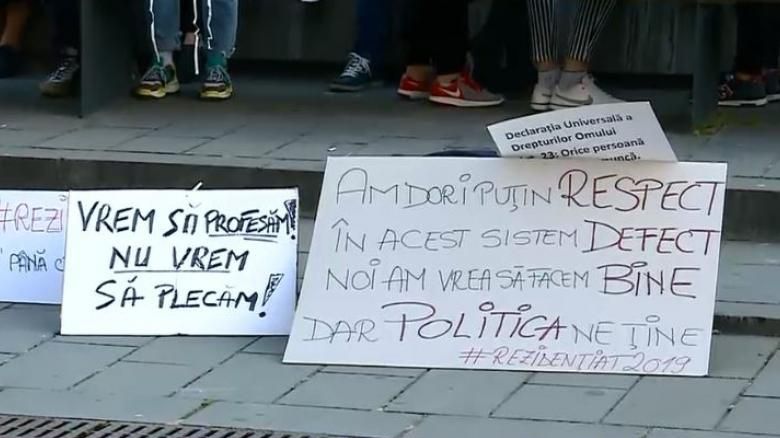 #REZI
PÂNĂ
VREM SĂ PROFESĂM!
NU VREM
SĂ PLECĂM!
Declarația Universală a
Drepturilor Omului
23: Orice persoană
muncă,
AM DORI PUȚIN RESPECT
ÎN ACEST SISTEM DEFECT
NOI AM VREA SĂ FACEM BINE
DAR POLITICA NE ȚINE
#REZIDENȚIAT2019